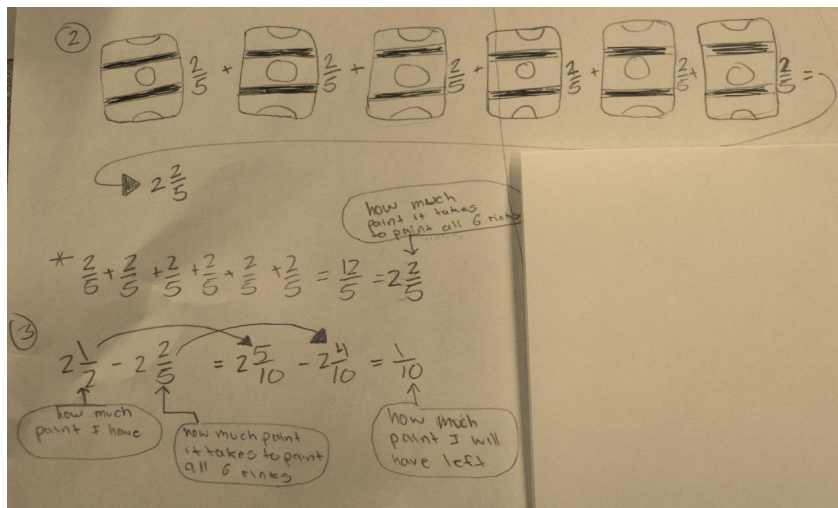 ②
2/5 + 2/5 + 2/5 + 2/5 + 2/5 + 2/5 =
2 2/5
how much
paint it takes
to paint all 6 rinks
* 2/5 + 2/5 + 2/5 + 2/5 + 2/5 + 2/5 = 12/5 = 2 2/5
③
2 1/2 - 2 2/5 = 2 5/10 - 2 4/10 = 1/10
how much
paint I have
how much paint
it takes to paint
all 6 rinks
how much
paint I will
have left